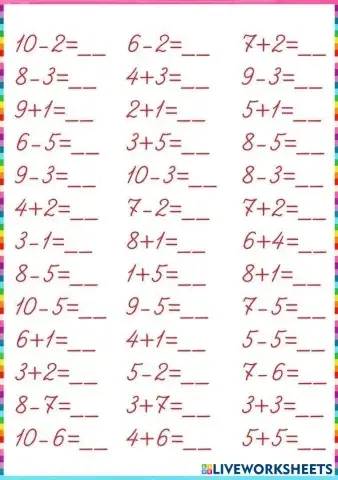 10-2=__ 6-2=__ 7+2=__
8-3=__ 4+3=__ 9-3=__
9+1=__ 2+1=__ 5+1=__
6-5=__ 3+5=__ 8-5=__
9-3=__ 10-3=__ 8-3=__
4+2=__ 7-2=__ 7+2=__
3-1=__ 8+1=__ 6+4=__
8-5=__ 1+5=__ 8+1=__
10-5=__ 9-5=__ 7-5=__
6+1=__ 4+1=__ 5-5=__
3+2=__ 5-2=__ 7-6=__
8-7=__ 3+7=__ 3+3=__
10-6=__ 4+6=__ 5+5=__
LIVEWORKSHEETS